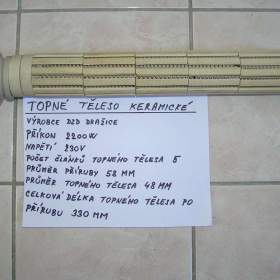 TOPNÉ TĚLESO KERAMICKÉ
VÝROBCE DZD DRAŽICE
PŘÍKON 2200W
NAPĚTÍ 230V
POČET ČLÁNKŮ TOPNÉHO TĚLESA 5
PRŮMĚR PŘÍRUBY 58 MM
PRŮMĚR TOPNÉHO TĚLESA 48 MM
CELKOVÁ DÉLKA TOPNÉHO TĚLESA PO
PŘÍRUBU 330 MM